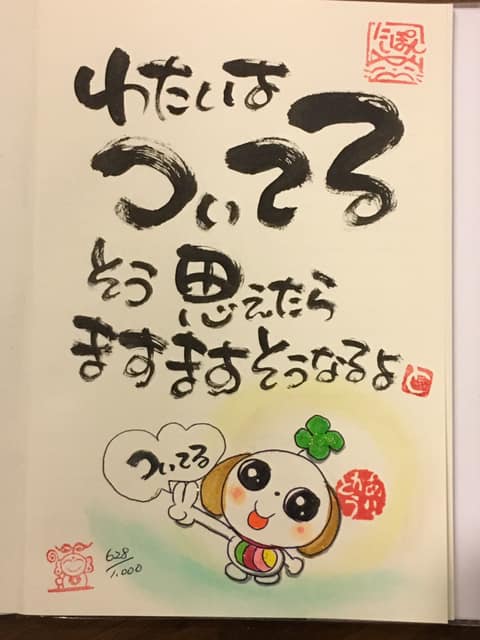 にしぽん
わたしは
ついてる
そう思えたら
ますますそうなるよ
ついてる
628/1,000